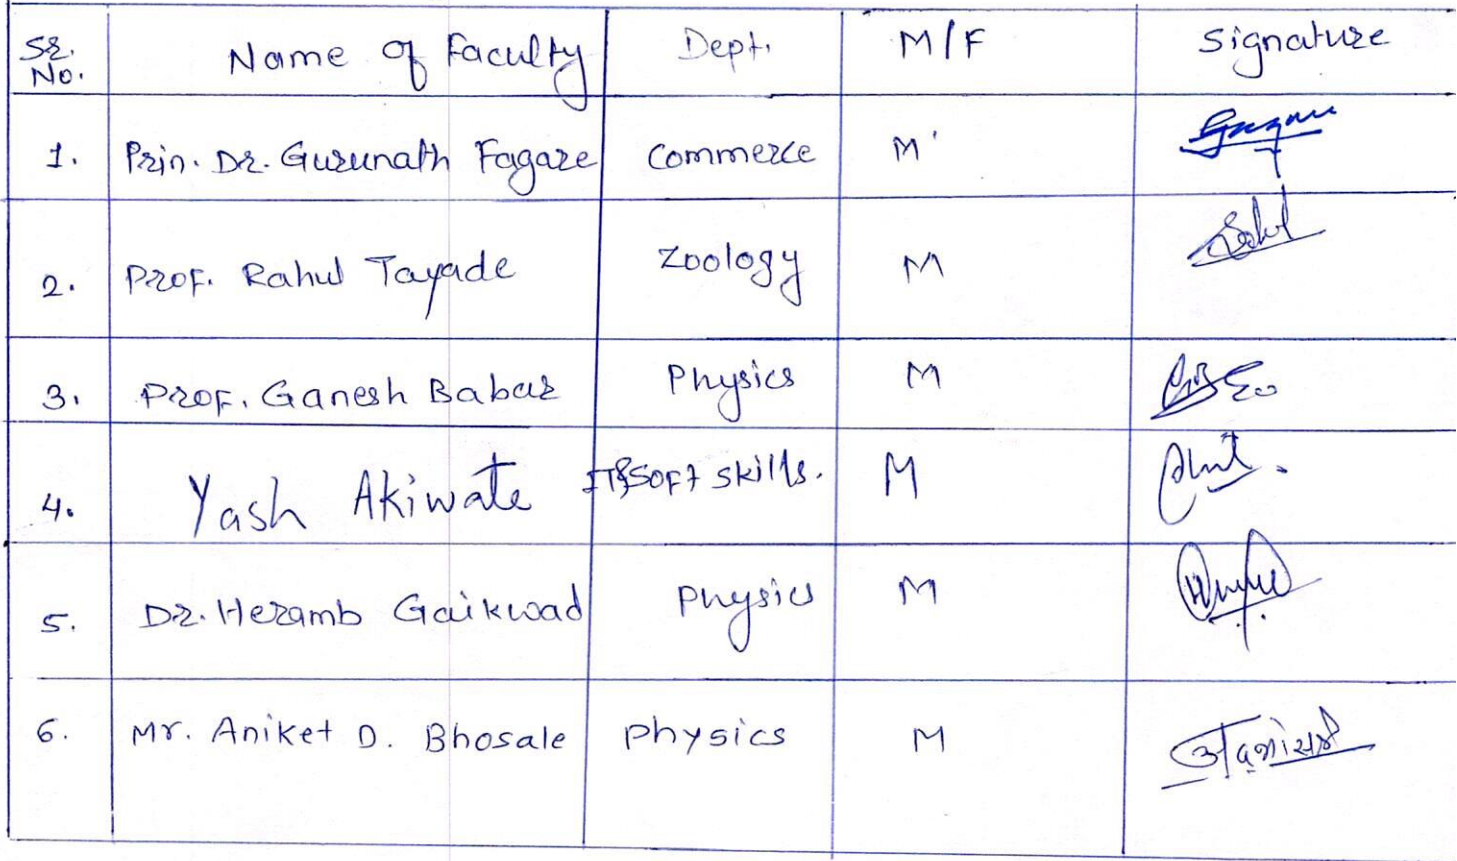 Sr. No. Name of Faculty Dept. M/F Signature
1. Prin. Dr. Gurunath Fagare Commerce M
2. Prof. Rahul Tayade Zoology M
3. Prof. Ganesh Babar Physics M
4. Yash Akiwate IT & Soft skills. M
5. Dr. Heramb Gaikwad Physics M
6. Mr. Aniket D. Bhosale Physics M